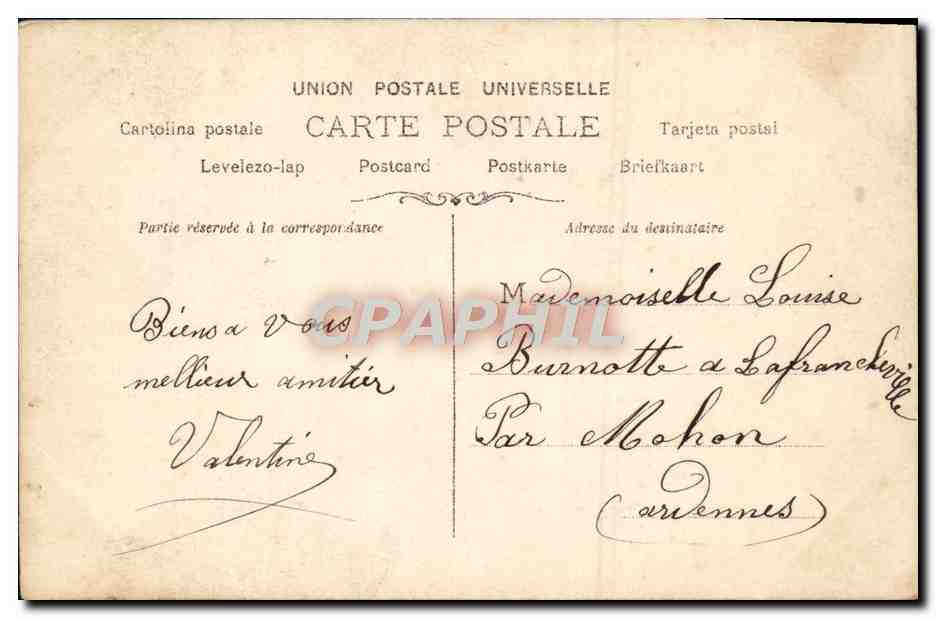 UNION POSTALE UNIVERSELLE
Cartolina postale CARTE POSTALE Tarjeta postal
Levelezo-lap Postcard Postkarte Briefkaart
Partie réservée à la correspondance
Adresse du destinataire
Biens a vous
mellieur amitier
Valentine
Mademoiselle Louise
Burnotte a Lafrancheville
Par Mohon
(ardennes)
CPAPHIL